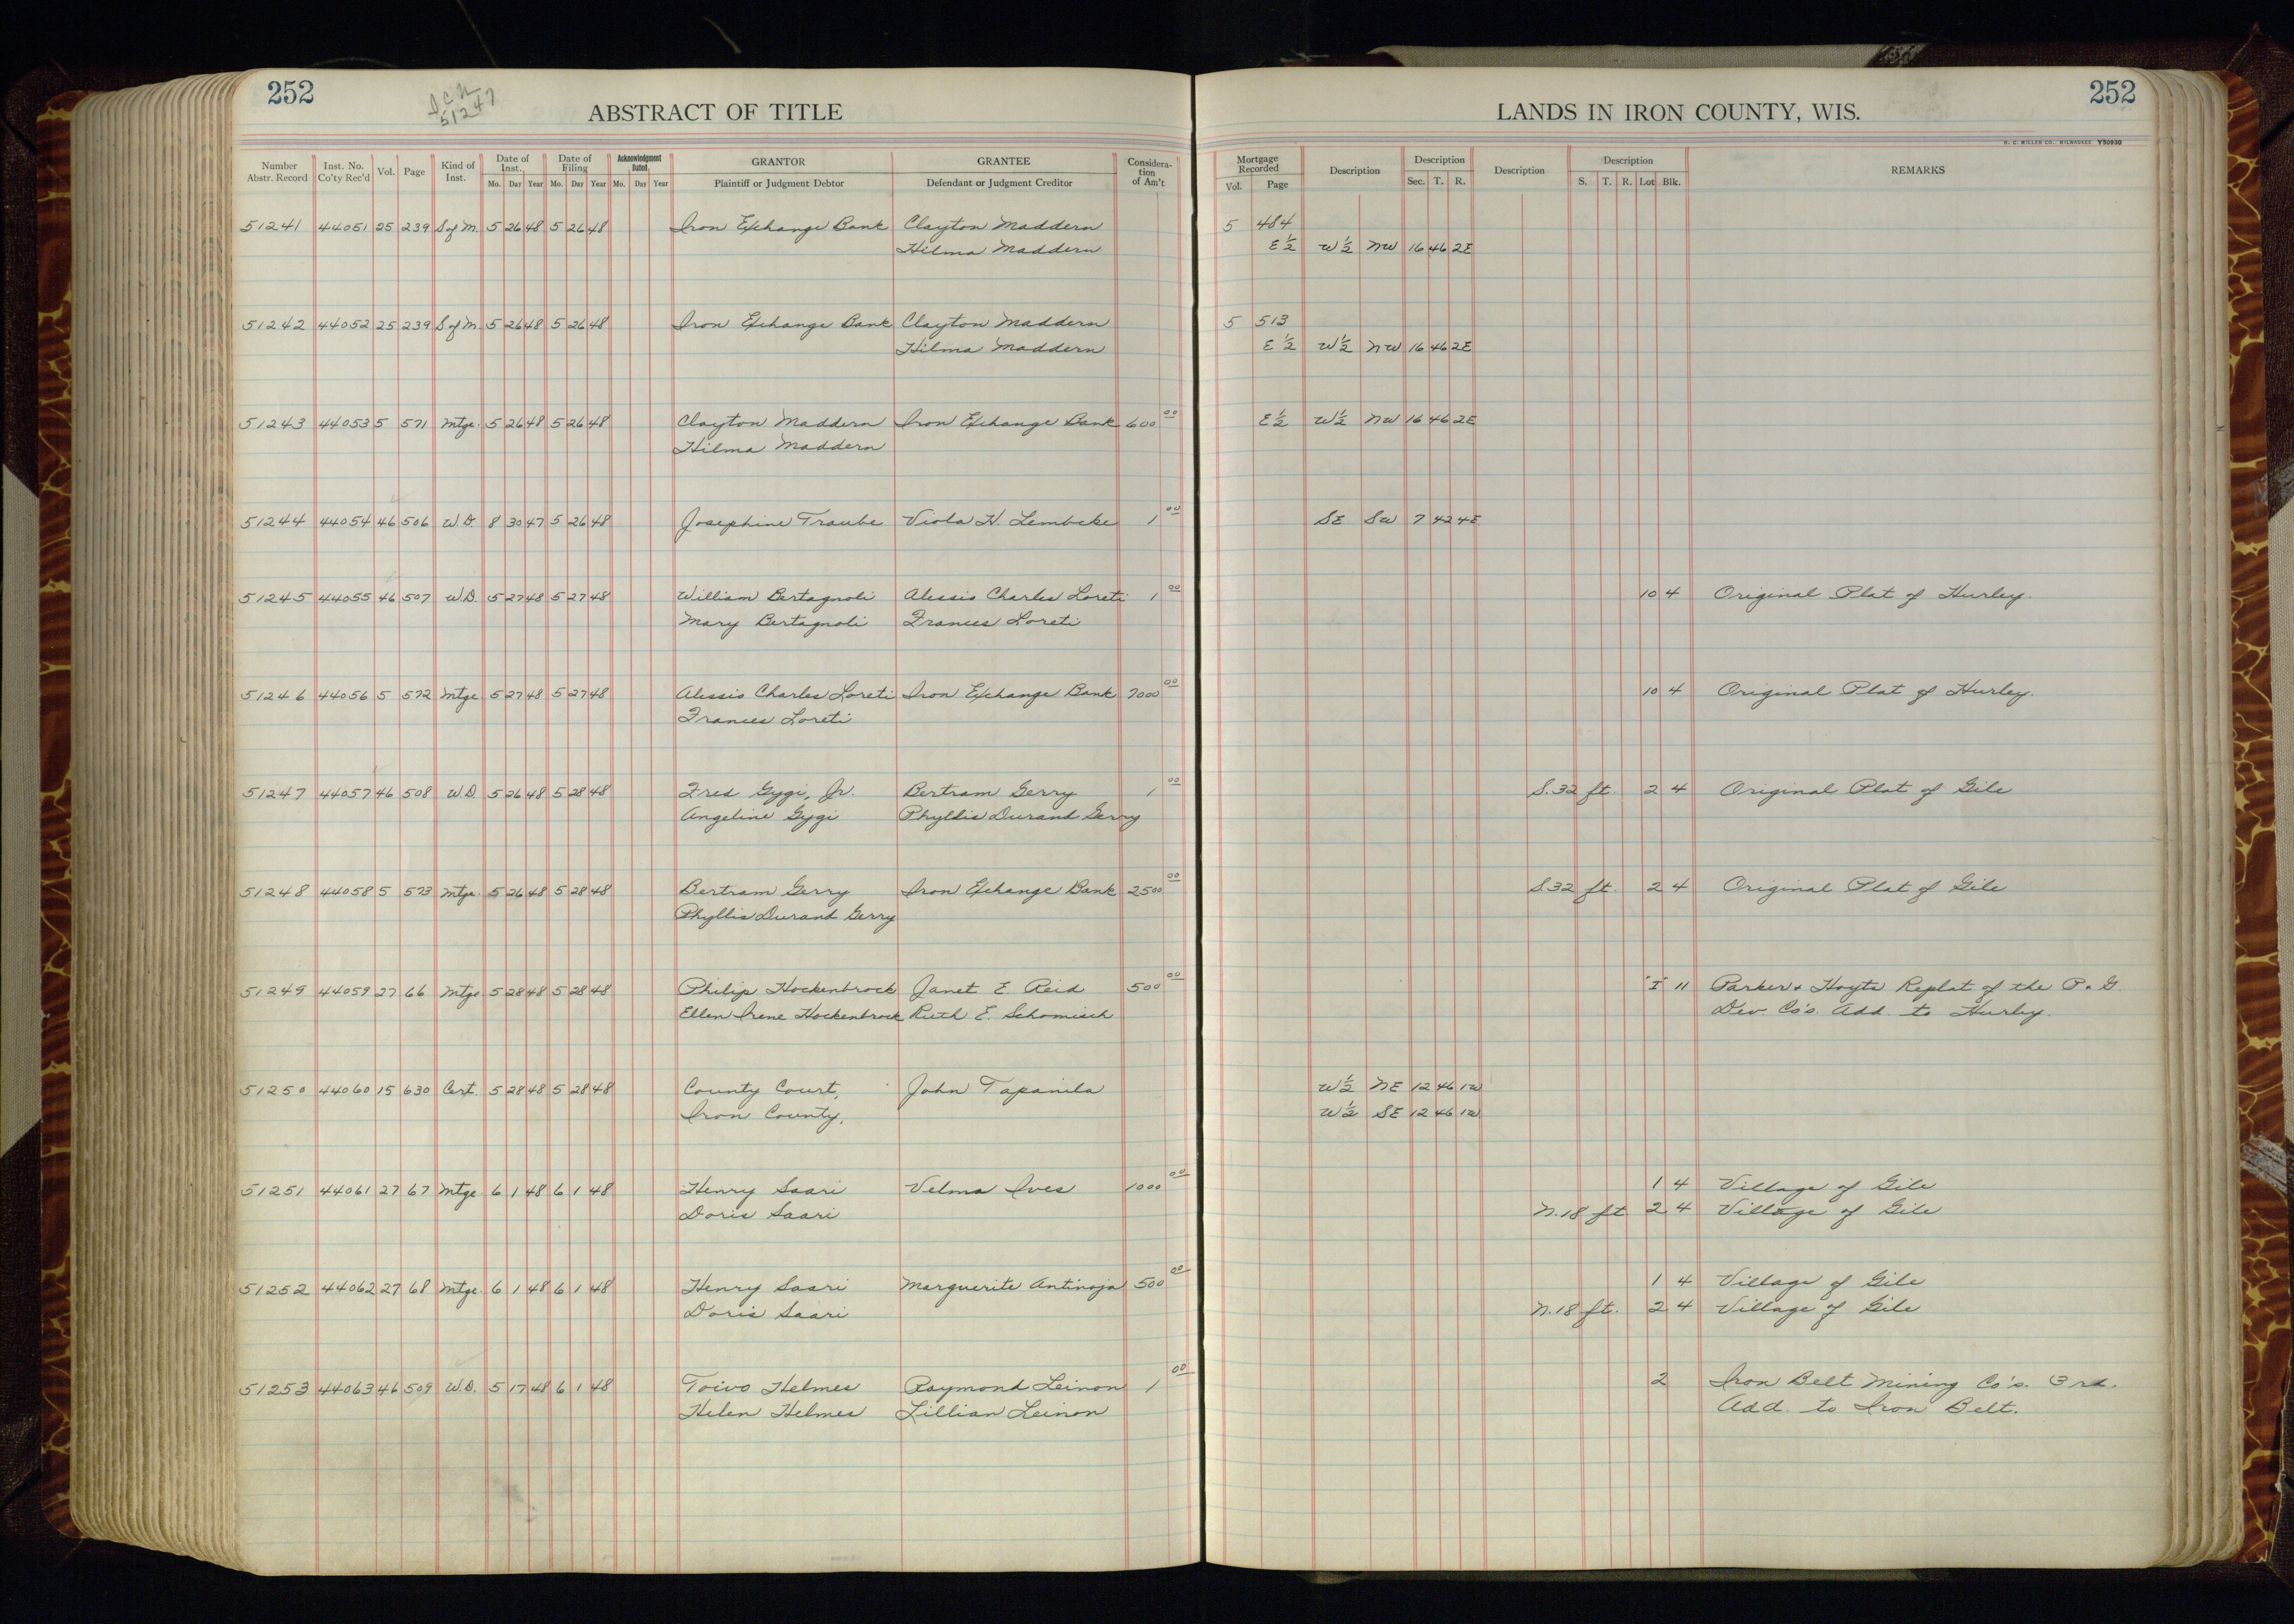 252
I C N
51247
ABSTRACT OF TITLE
LANDS IN IRON COUNTY, WIS.
252
H. C. MILLER CO., MILWAUKEE Y50930
Number Abstr. Record | Inst. No. Co'ty Rec'd | Vol. | Page | Kind of Inst. | Date of Inst. Mo. Day Year | Date of Filing Mo. Day Year | Acknowledgment Dated Mo. Day Year | GRANTOR Plaintiff or Judgment Debtor | GRANTEE Defendant or Judgment Creditor | Consideration of Am't | Mortgage Recorded Vol. Page | Description | Description Sec. T. R. | Description | Description S. T. R. Lot Blk. | REMARKS
51241 44051 25 239 S of M. 5 26 48 5 26 48 Iron Exchange Bank Clayton Maddern 5 484
Hilma Maddern E ½ W ½ NW 16 46 2E
51242 44052 25 239 S of M. 5 26 48 5 26 48 Iron Exchange Bank Clayton Maddern 5 513
Hilma Maddern E ½ W ½ NW 16 46 2E
51243 44053 5 571 Mtge. 5 26 48 5 26 48 Clayton Maddern Iron Exchange Bank 600 00 E ½ W ½ NW 16 46 2E
Hilma Maddern
51244 44054 46 506 W.D. 8 30 47 5 26 48 Josephine Traube Viola H. Lembcke 1 00 SE SW 7 42 4E
51245 44055 46 507 W.D. 5 27 48 5 27 48 William Bertagnoli Alessio Charles Loreti 1 00 10 4 Original Plat of Hurley.
Mary Bertagnoli Frances Loreti
51246 44056 5 572 Mtge. 5 27 48 5 27 48 Alessio Charles Loreti Iron Exchange Bank 7000 00 10 4 Original Plat of Hurley.
Frances Loreti
51247 44057 46 508 W.D. 5 26 48 5 28 48 Fred Gygi, Jr. Bertram Gerry 1 00 S. 32 ft. 2 4 Original Plat of Gile
Angeline Gygi Phyllis Durand Gerry
51248 44058 5 573 Mtge. 5 26 48 5 28 48 Bertram Gerry Iron Exchange Bank 2500 00 S. 32 ft. 2 4 Original Plat of Gile
Phyllis Durand Gerry
51249 44059 27 66 Mtge 5 28 48 5 28 48 Philip Hockenbrock Janet E. Reid 500 00 "I" 11 Parker & Hoyts Replat of the P. & G.
Ellen Irene Hockenbrock Ruth E. Schomisch Dev. Co's. Add. to Hurley.
51250 44060 15 630 Cert. 5 28 48 5 28 48 County Court, John Tapanila W ½ NE 12 46 1W
Iron County, W ½ SE 12 46 1W
51251 44061 27 67 Mtge 6 1 48 6 1 48 Henry Saari Velma Ives 1000 00 1 4 Village of Gile
Doris Saari N. 18 ft 2 4 Village of Gile
51252 44062 27 68 Mtge. 6 1 48 6 1 48 Henry Saari Marguerite Antinoja 500 00 1 4 Village of Gile
Doris Saari N. 18 ft. 2 4 Village of Gile
51253 44063 46 509 W.D. 5 17 48 6 1 48 Toivo Helmes Raymond Leinon 1 00 2 Iron Belt Mining Co's. 3rd.
Helen Helmes Lillian Leinon Add. to Iron Belt.